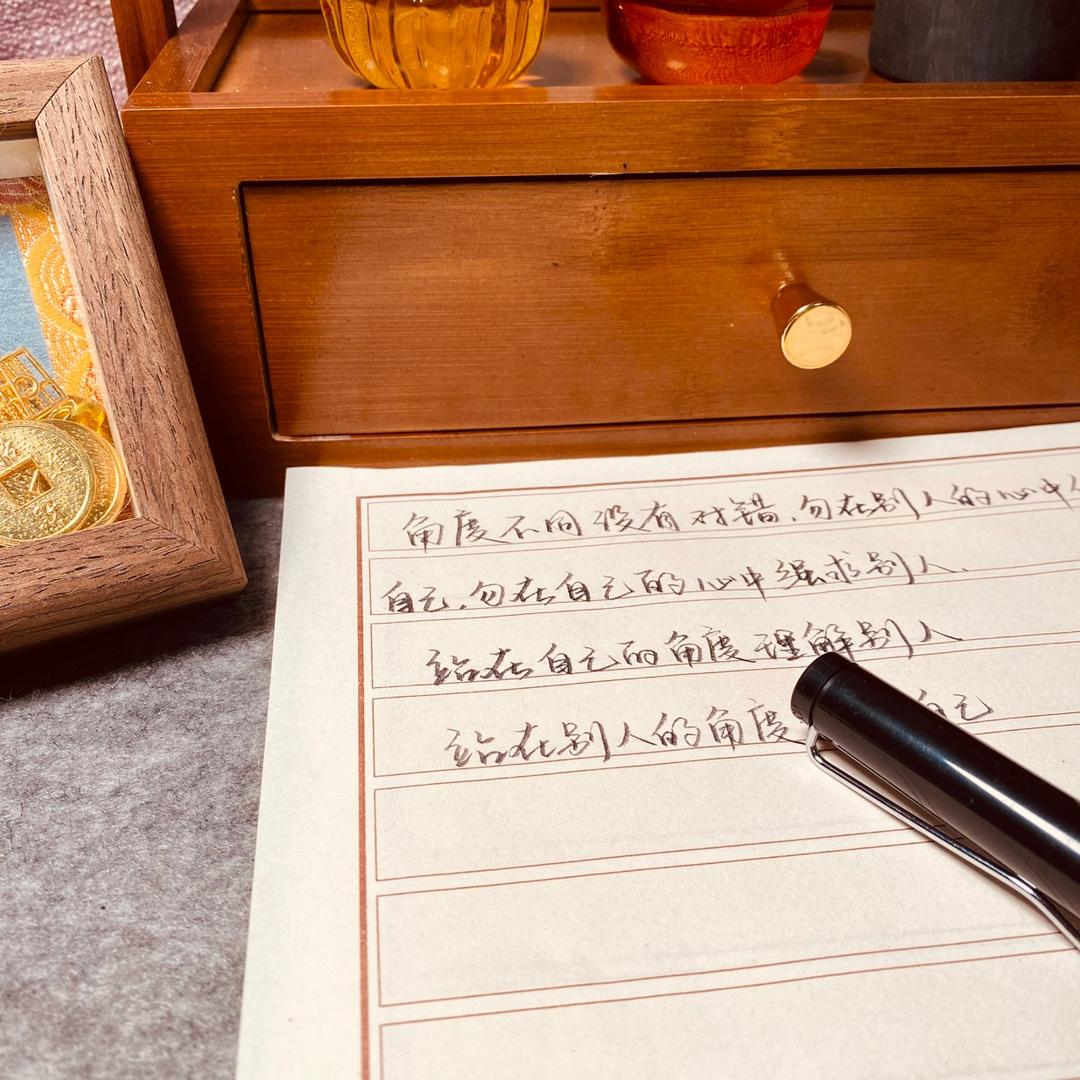 角度不同没有对错,勿在别人的心中
自己,勿在自己的心中强求别人.
站在自己的角度理解别人
站在别人的角度 自己